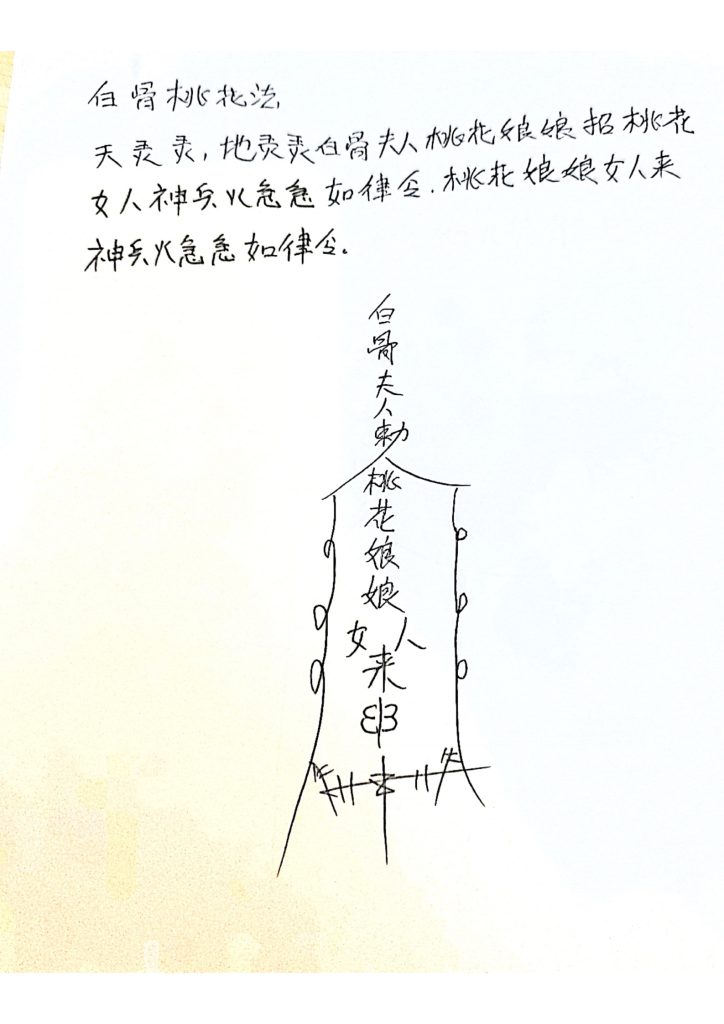 白骨桃花法,
天灵灵,地灵灵白骨夫人桃花娘娘招桃花
女人神兵火急急如律令.桃花娘娘女人来
神兵火急急如律令.
白
骨
夫
人
勅
桃
花
娘
娘
女 人
来